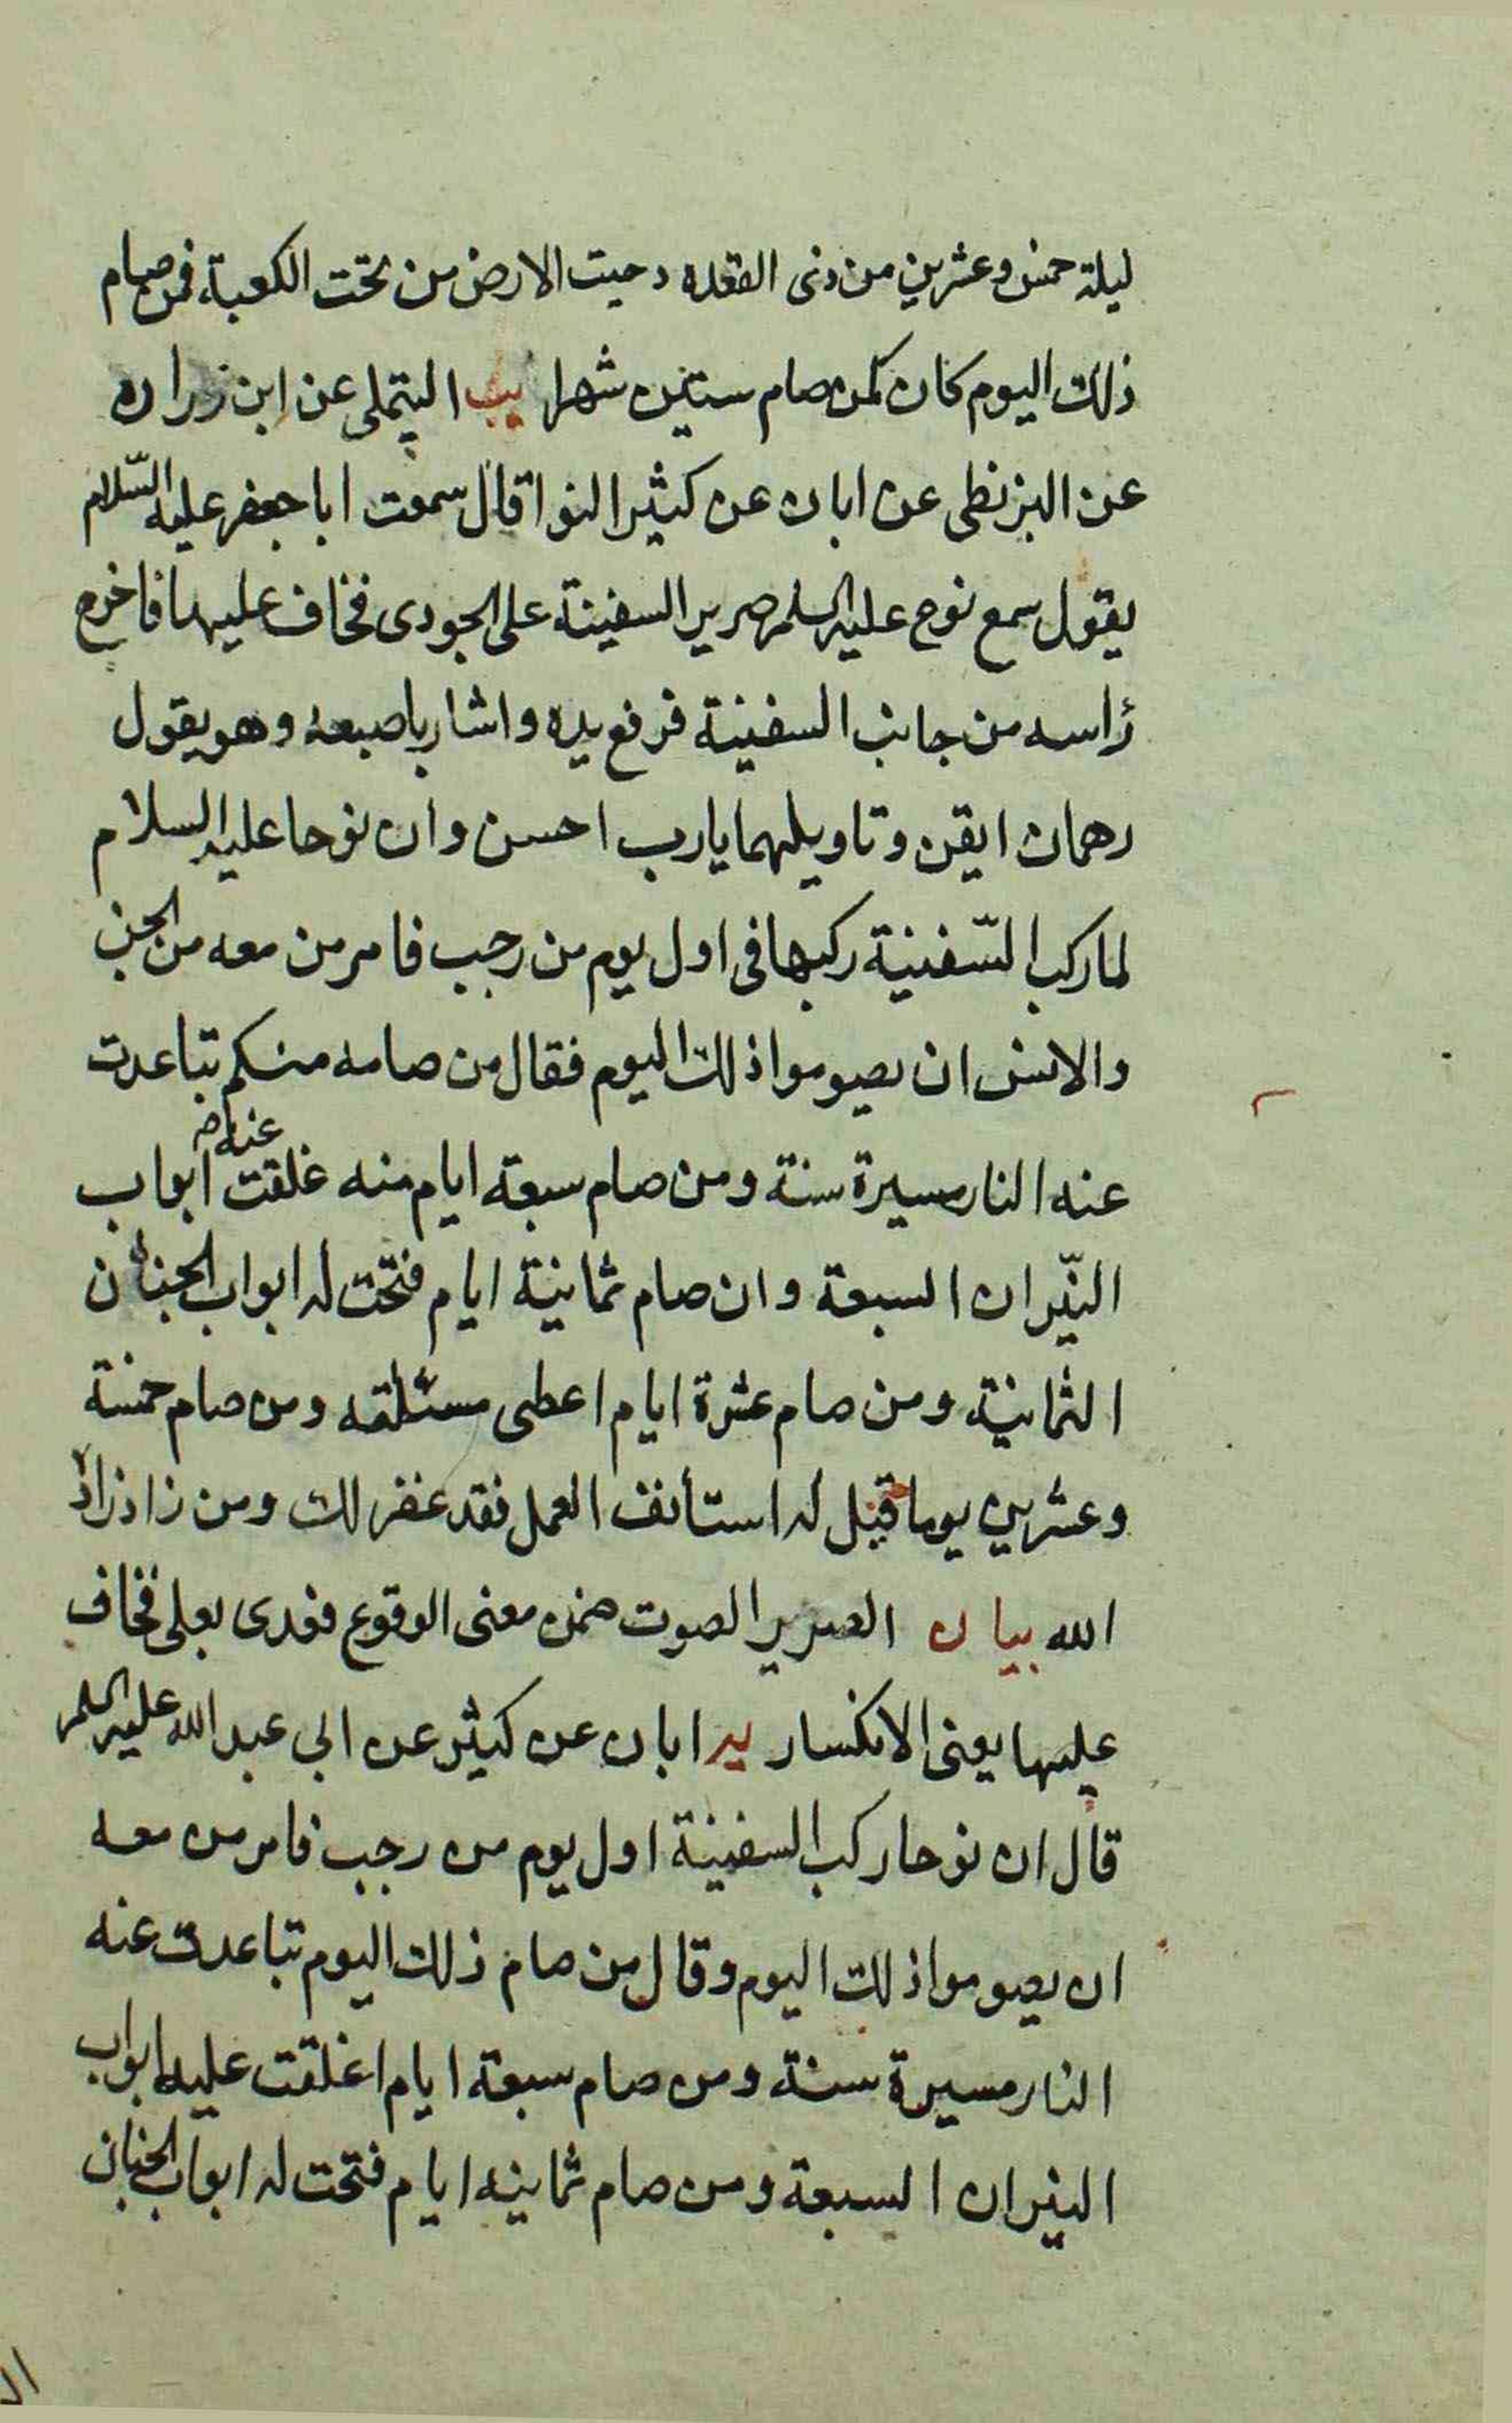 ليلة خمس وعشرين من ذى القعده دحيت الارض من تحت الكعبة فمن صام
ذلك اليوم كان كمن صام ستين شهرا يب التيملى عن ابن زراره
عن البزنطى عن ابان عن كثير النوا قال سمعت ابا جعفر عليه السّلام
يقول سمع نوح عليه السلم صرير السفينة على الجودى فخاف عليها فاخرج
رأسه من جانب السفينة فرفع يده واشار باصبعه وهو يقول
رهمان ايقن وتاويلهما يارب احسن وان نوحا عليه السلام
لما ركب السّفينة ركبها فى اول يوم من رجب فامر من معه من الجن
والانس ان يصوموا ذلك اليوم فقال من صامه منكم تباعدت
عنه النار مسيرة سنة ومن صام سبعة ايام منه غلقت عنه ابواب
النّيران السبعة وان صام ثمانية ايام فتحت له ابواب الجنان
الثمانية ومن صام عشرة ايام اعطى مسئلته ومن صام خمسة
وعشرين يوما قيل له استأنف العمل فقد غفر لك ومن زاد زاده
الله بيان الصرير الصوت ضمن معنى الوقوع فعدى بعلى فخاف
عليها يعنى الانكسار يه ابان عن كثير عن ابى عبد الله عليه السلم
قال ان نوحا ركب السفينة اول يوم من رجب فامر من معه
ان يصوموا ذلك اليوم وقال من صام ذلك اليوم تباعدت عنه
النار مسيرة سنة ومن صام سبعة ايام اغلقت عليه ابواب
النيران السبعة ومن صام ثمانيه ايام فتحت له ابواب الجنان